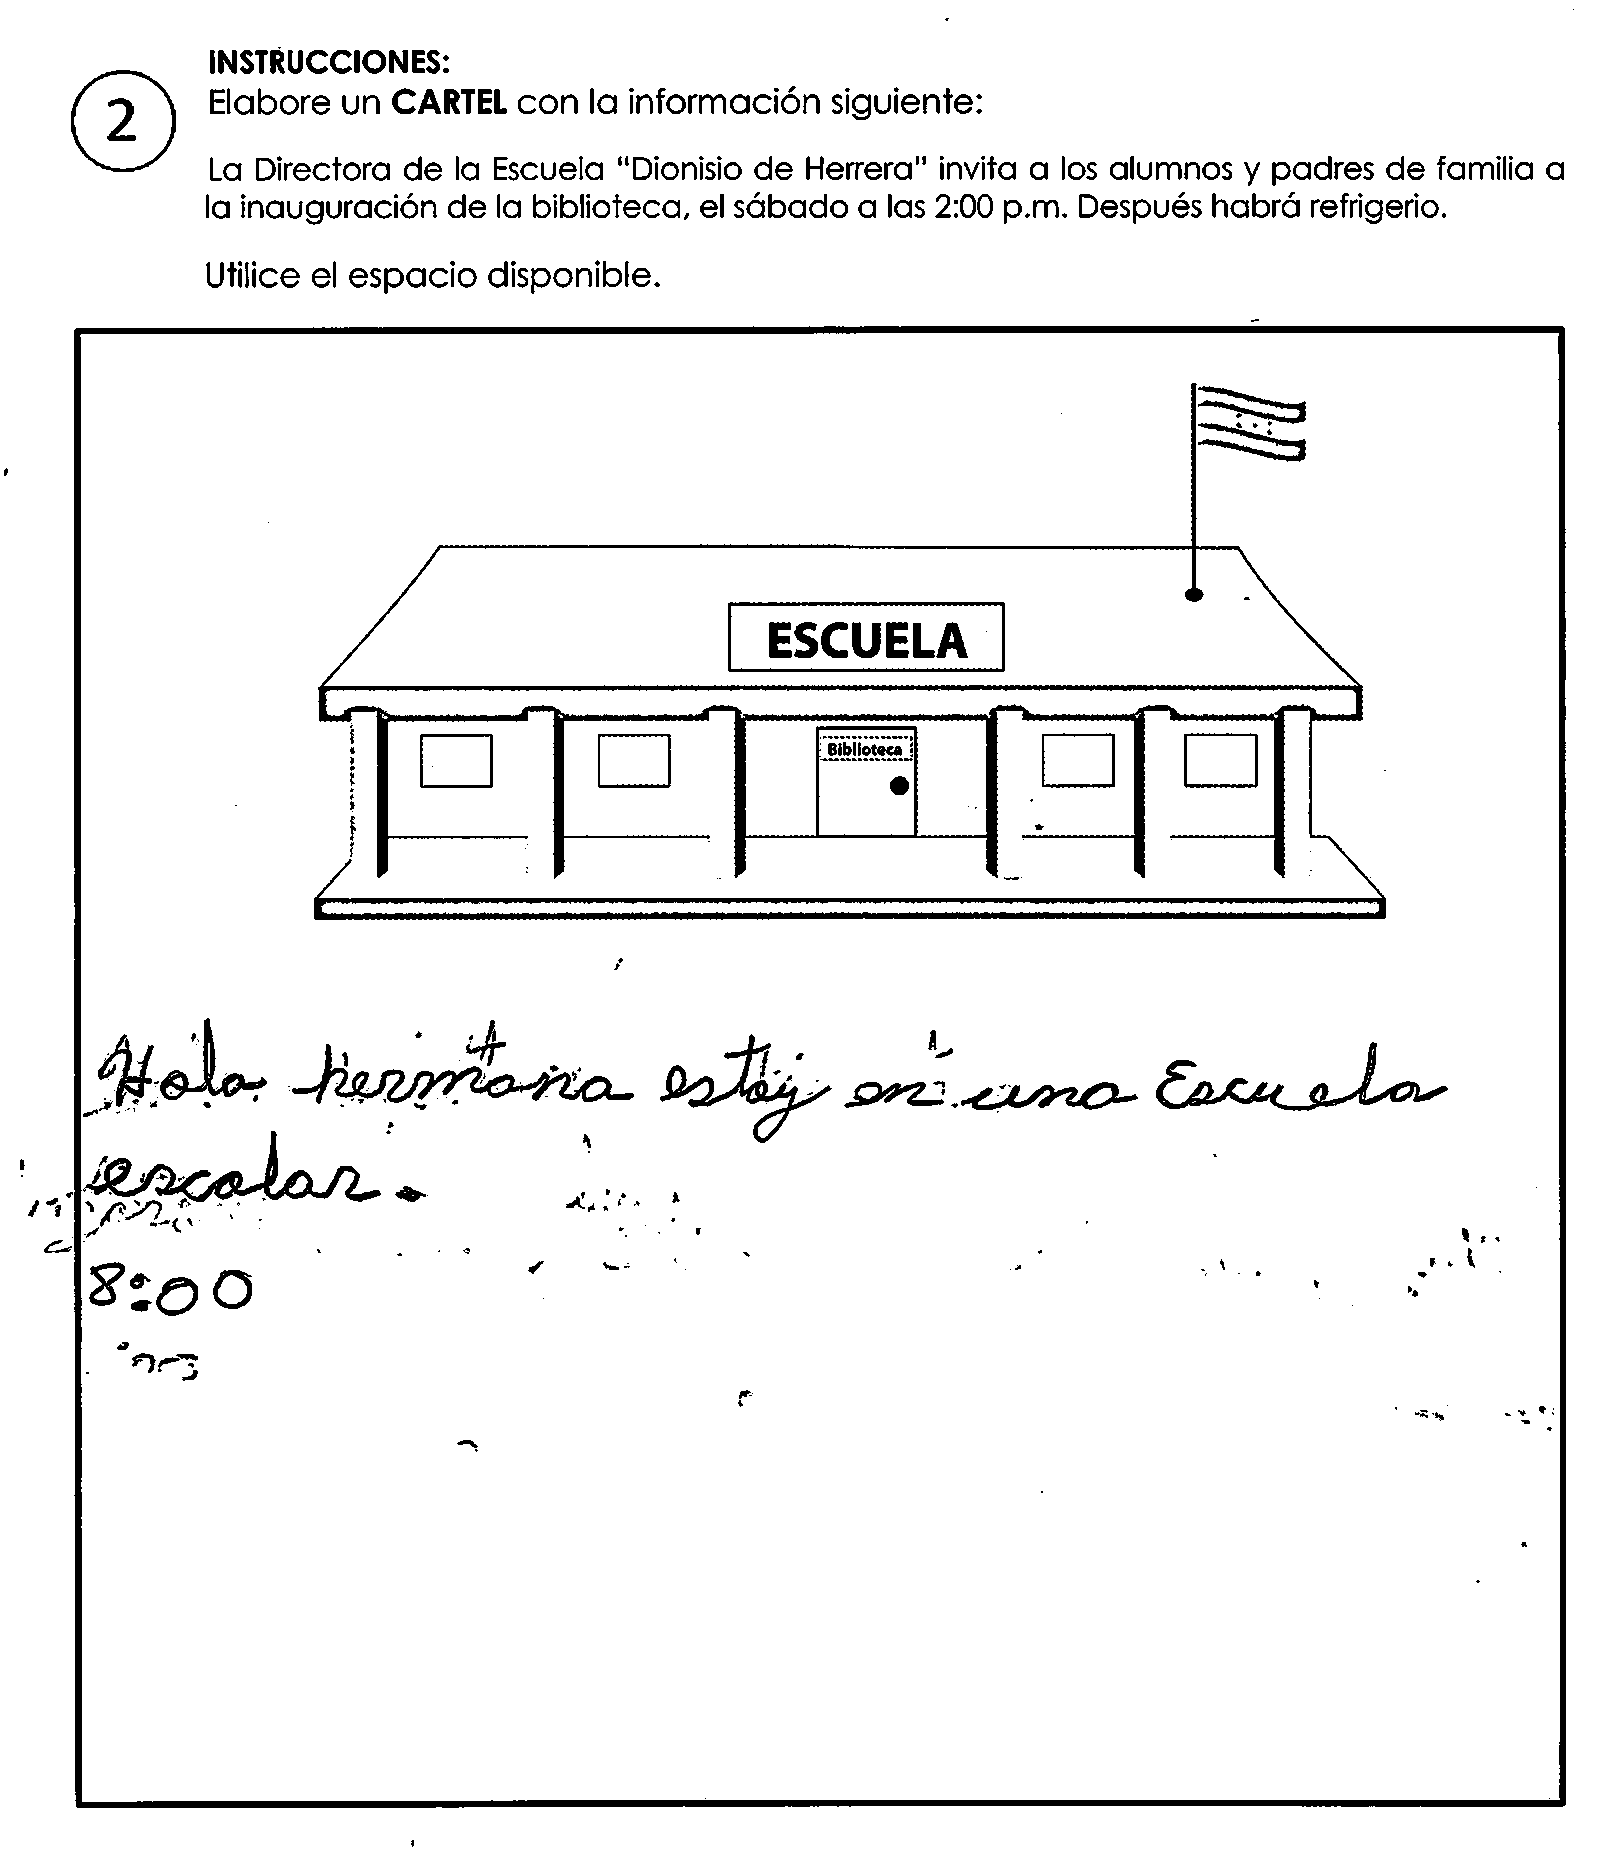 INSTRUCCIONES:
2
Elabore un CARTEL con la información siguiente:
La Directora de la Escuela "Dionisio de Herrera" invita a los alumnos y padres de familia a
la inauguración de la biblioteca, el sábado a las 2:00 p.m. Después habrá refrigerio.
Utilice el espacio disponible.
ESCUELA
Biblioteca
Hola hermana estoy en una Escuela
escolar.
8:00